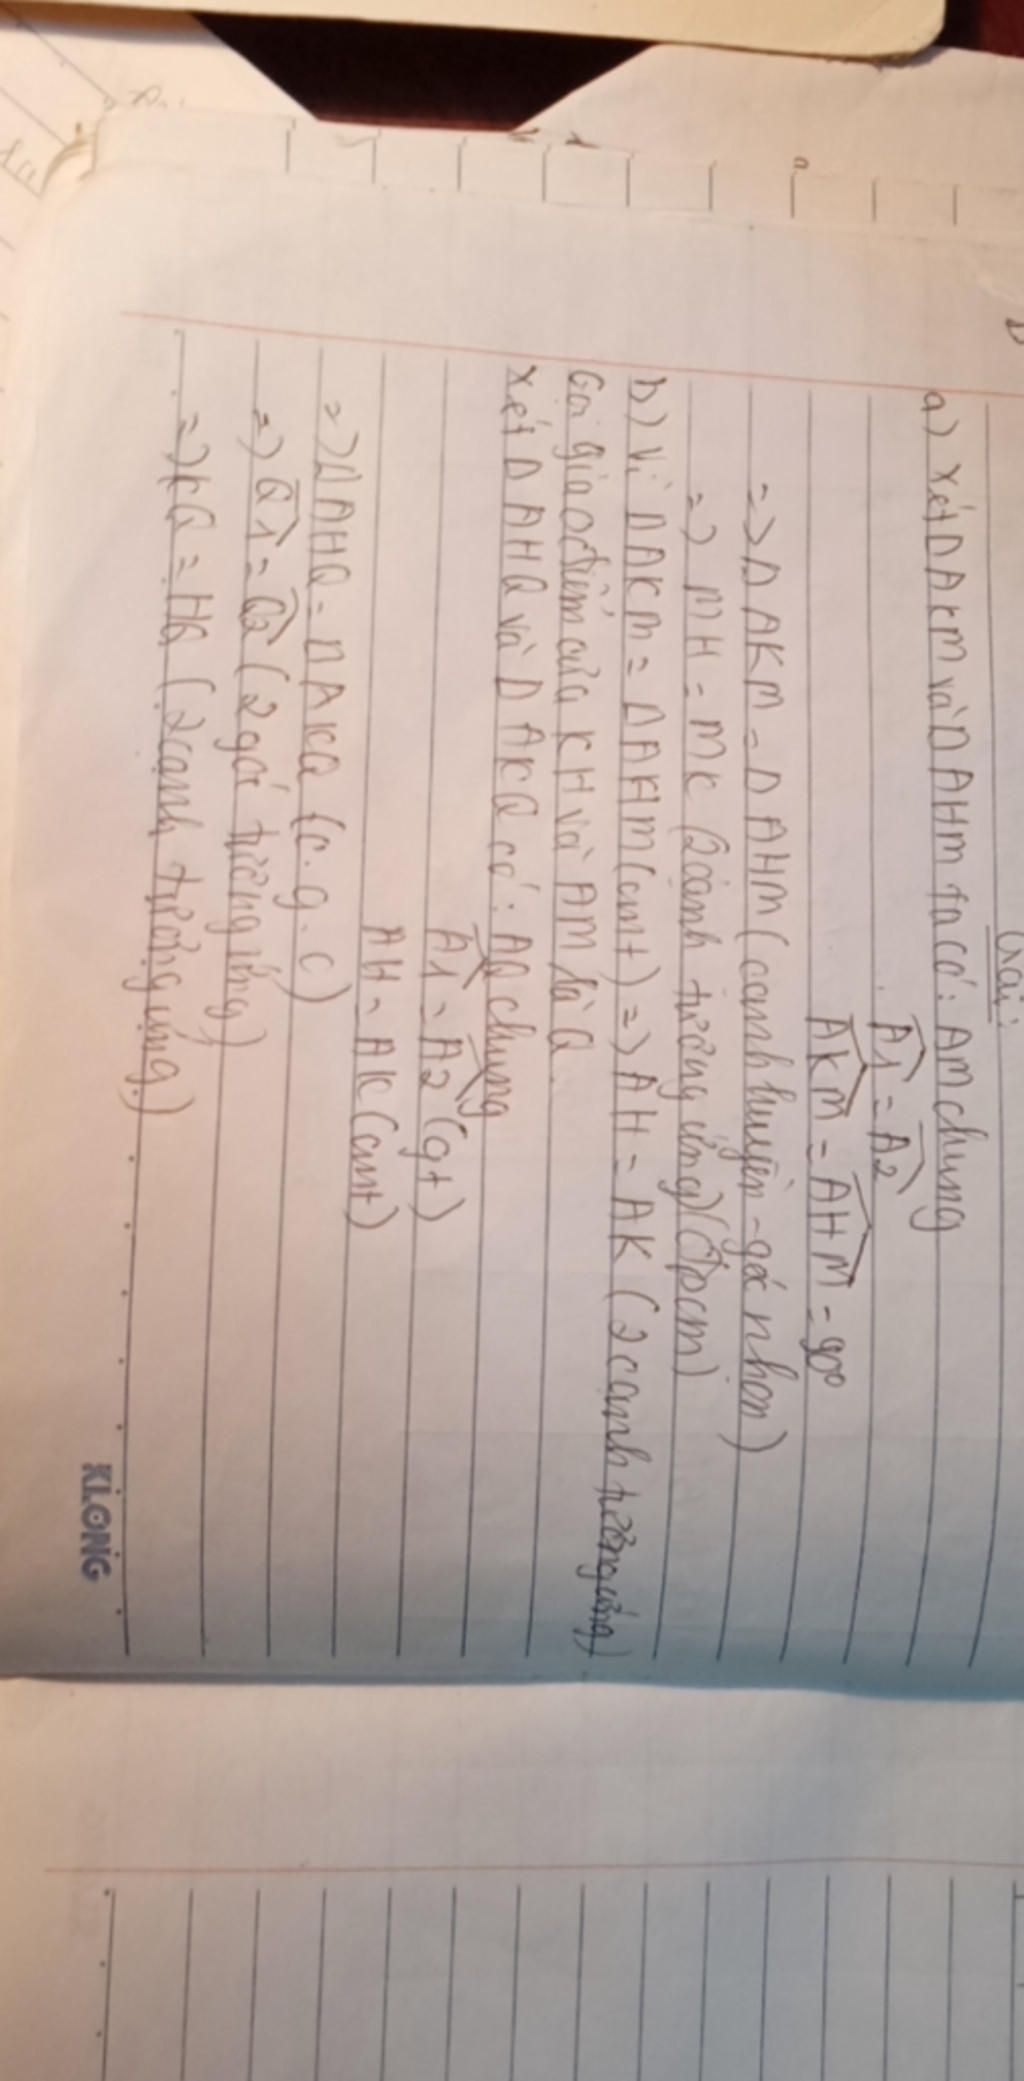 Giải:
a) xét Δ AKM và Δ AHM ta có: AM chung
A1 = A2
AKM = AHM = 90°
=> Δ AKM = Δ AHM (cạnh huyền - góc nhọn)
=> MH = MK (2 cạnh tương ứng) (đpcm)
b) Vì Δ AKM = Δ AHM (cmt) => AH = AK (2 cạnh tương ứng)
Gọi giao điểm của KH và AM là Q.
xét Δ AHQ và Δ AKQ có: AQ chung
A1 = A2 (gt)
AH = AK (cmt)
=> Δ AHQ = Δ AKQ (c.g.c)
=> Q1 = Q2 (2 góc tương ứng)
=> KQ = HQ (2 cạnh tương ứng)
KLONG